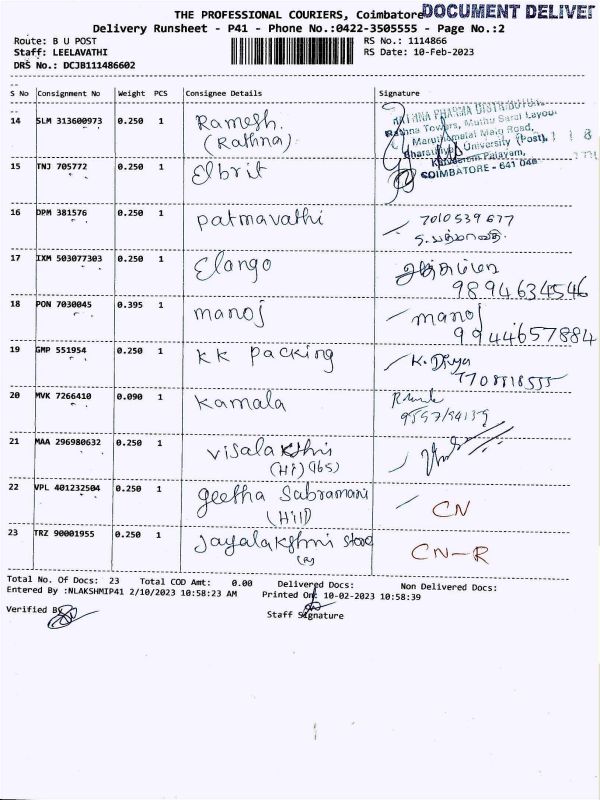 THE PROFESSIONAL COURIERS, Coimbatore
DOCUMENT DELIVER
Delivery Runsheet - P41 - Phone No.:0422-3505555 - Page No.:2
Route: B U POST
RS No.: 1114866
Staff: LEELAVATHI
RS Date: 10-Feb-2023
DRS No.: DCJB111486602
S No Consignment No Weight PCS Consignee Details Signature
14 SLM 313600973 0.250 1 Ramesh.
(Rathna)
RATHNA PHARMA DISTRIBUTOR
Rathna Towers, Muthu Sarai Layou
Maruthamalai Main Road,
Bharathiyar University (Post),
Palayam,
COIMBATORE - 641 046
15 TNJ 705772 0.250 1 Elbrit
16 DPM 381576 0.250 1 Patmavathi 7010539677
17 IXM 503077303 0.250 1 Elango
9894634546
18 PON 7030045 0.395 1 manoj manoj
9944657884
19 GMP 551954 0.250 1 KK Packing K. Divya
20 MVK 7266410 0.090 1 Kamala
21 MAA 296980632 0.250 1 Visalakshi
22 VPL 401232504 0.250 1 geetha Sabramani CN
(Hill)
23 TRZ 90001955 0.250 1 Jayalakshmi store CN-R
Total No. Of Docs: 23 Total COD Amt: 0.00 Delivered Docs: Non Delivered Docs:
Entered By :NLAKSHMIP41 2/10/2023 10:58:23 AM Printed On: 10-02-2023 10:58:39
Verified By
Staff Signature